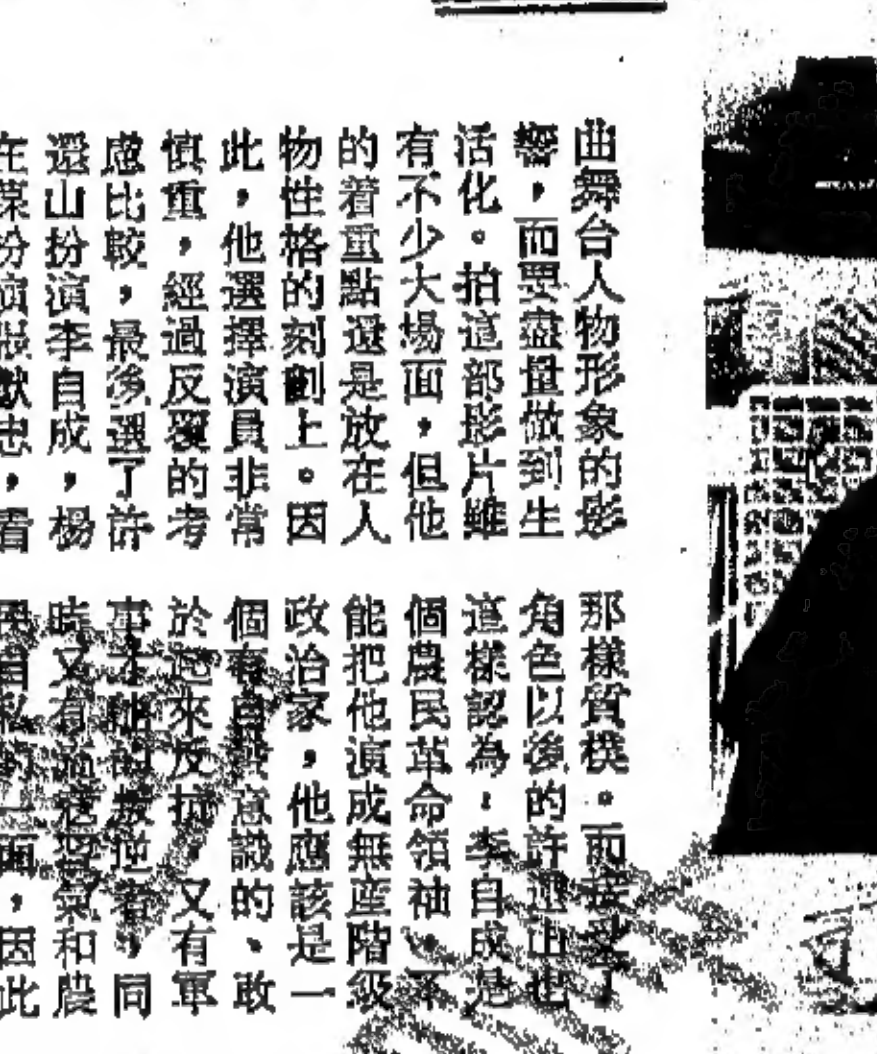 曲舞台人物形象的影
響，而要盡量做到生
活化。拍這部影片雖
有不少大場面，但他
的着重點還是放在人
物性格的刻劃上。因
此，他選擇演員非常
慎重，經過反覆的考
慮比較，最後選了許
還山扮演李自成，楊
在葆扮演張獻忠，看
那樣質樸。而接受了
角色以後的許還山也
這樣認為：李自成是
個農民革命領袖，不
能把他演成無產階級
政治家，他應該是一
個有自發意識的、敢
於起來反抗，又有軍
事才能的叛逆者，同
時又有流寇習氣和農
民自私的一面，因此